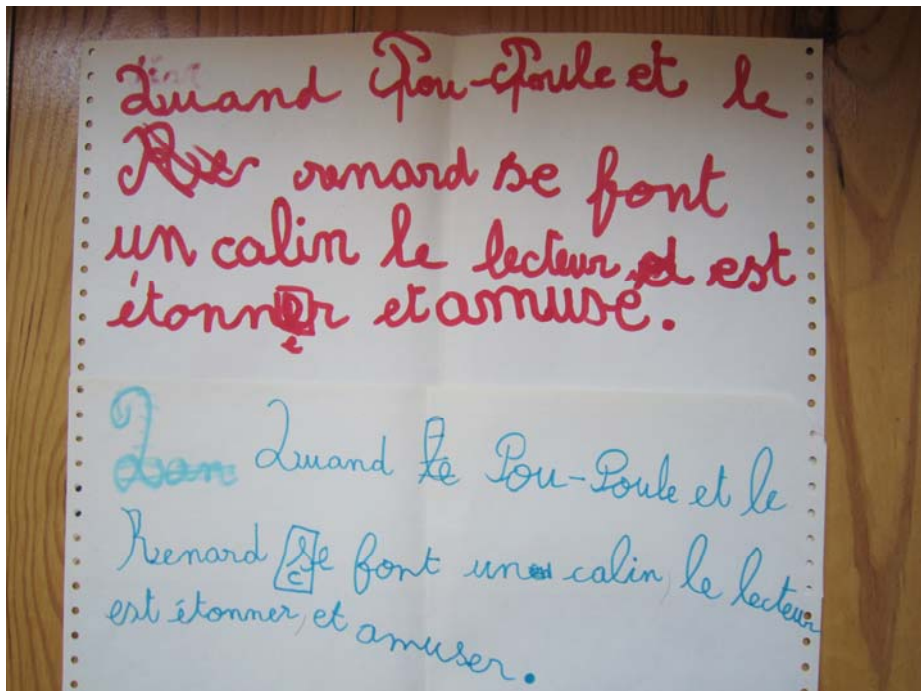 Quand Pou-Poule et le
renard se font
un calin le lecteur est
étonner et amusé.
é
Quand le Pou-Poule et le
Renard se font un calin, le lecteur
c
est étonner, et amuser.